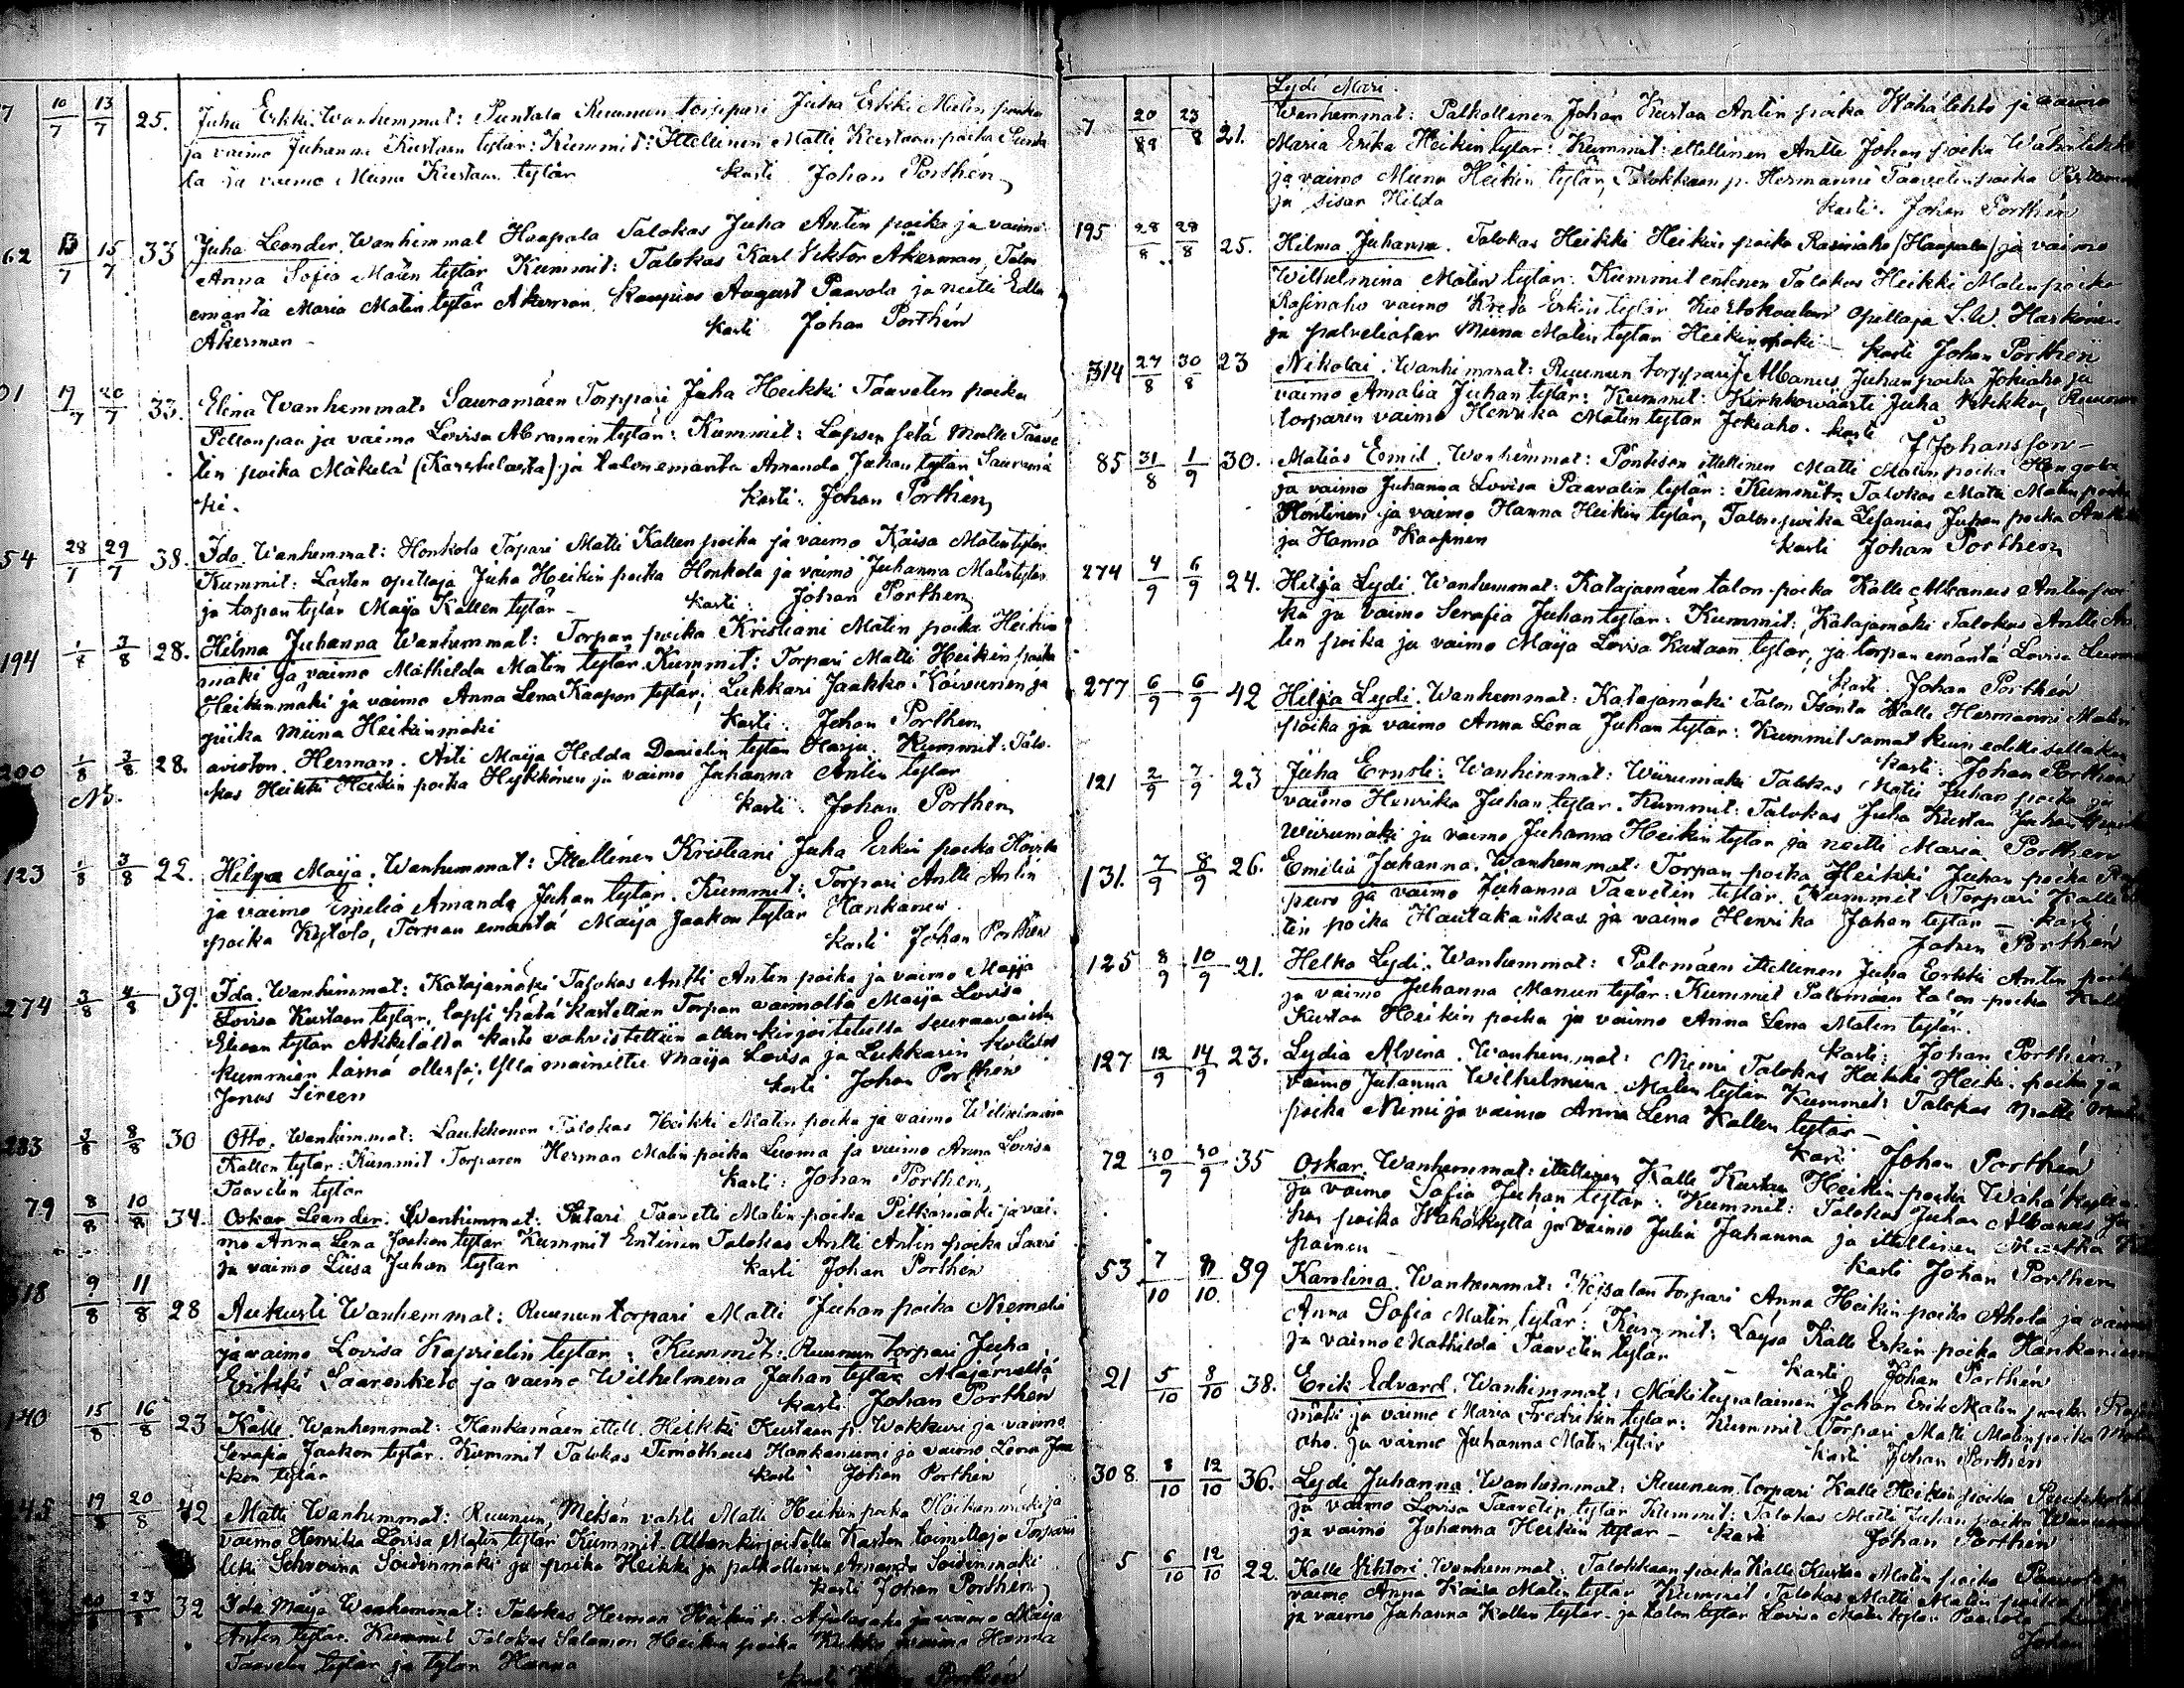 7 10/7 13/7 25. Juha Erkki. Wanhemmat: Puntala Ruunun torppari Juha Erkki Matin poika
ja vaimo Juhanna Kustaan tytär: Kummit: Ittellinen Matti Kustaan poika Punta
la ja vaimo Miina Kustaan tytär kasti Johan Porthén
62 13/7 15/7 33 Juha Leander. Wanhimmat Haapala Talokas Juha Antin poika ja vaimo
Anna Sofia Matin tytär Kummit: Talokas Karl Viktor Åkerman, Talon
emäntä Maria Matin tytär Akerman, Kaupias August Paavola ja neiti Edla
Åkerman - kasti Johan Porthén
01 19/7 20/7 33. Elina Wanhemmat. Sauramäen Torppari Juha Heikki Taavetin poika
ja vaimo Lovisa Abramin tytär: Kummit: Lapsen setä Matti Taave
tin poika Mäkelä (Karstulasta) ja talon emäntä Amanda Juhan tytär Sauramä
ki. kasti: Johan Porthén
54 28/7 29/7 38. Ida Wanhemmat: Honkola Torpari Matti Kallen poika ja vaimo Kaisa Matin tytär
Kummit: Lasten opettaja Juha Heikin poika Honkola ja vaimo Juhanna Matin tytär
ja torpan tytär Maija Kallen tytär - kasti: Johan Porthén
194 1/8 3/8 28. Hilma Juhanna Wanhemmat: Torpan poika Kristiani Matin poika Heikin
mäki ja vaimo Mathilda Matin tytär Kummit: Torpari Matti Heikin poika
Heikinmäki ja vaimo Anna Lena Kaapon tytär, Lukkari Jaakko Koivunen ja
piika Miina Heikinmäki kasti: Johan Porthén
200 1/8 3/8 28. avioton. Herman. Äiti Maija Hedda Danielin tytär Harju. Kummit: Talo-
kas Heikki Heikin poika Hykkönen ja vaimo Juhanna Antin tytär
kasti: Johan Porthén
123 1/8 3/8 22. Hilja Maija. Wanhemmat: Ittellinen Kristiani Juha Erkin poika
ja vaimo Emelia Amanda Juhan tytär. Kummit: Torpari Antti Antin
poika Kytölä, Torpan emäntä Maija Jaakon tytär Hankanen.
kasti Johan Porthén
274 3/8 4/8 39. Ida. Wanhimmat: Katajamäki Talokas Antti Antin poika ja vaimo Maija
Lovisa Kustaan tytär. lapsi hätä kastettiin Torpan vaimolta Maija Lovisa
Elisan tytär kaste vahvistettiin allen kirjoitetulta seuraavaisten
kummien läsnä ollessa; Yllä mainittu Maija Lovisa ja Lukkarin
Jonas Sireen kasti Johan Porthén
283 3/8 8/8 30 Otto. Wanhimmat: Laukkonen Talokas Heikki Matin poika ja vaimo Wilhelmina
Kallen tytär: Kummit Torparin Herman Matin poika Luoma ja vaimo Anna Lovisa
Taavetin tytär kasti: Johan Porthén
79 8/8 10/8 34. Oskar Leander. Wanhimmat: Taavetti Matin poika Pitkämäki ja vai-
mo Anna Lena Jaakon tytär Kummit Entinen Talokas Antti Antin poika Saari
ja vaimo Liisa Juhan tytär kasti Johan Porthén
318 9/8 11/8 28 Aukusti Wanhemmat: Ruunun torpari Matti Juhan poika Niemelä
ja vaimo Lovisa Kaprielin tytär: Kummit: Ruunun torpari Juha
Erkki Saarenketo ja vaimo Wilhelmiina Juhan tytär Alajärveltä
kasti Johan Porthen
140 15/8 16/8 23 Kalle. Wanhemmat: Hankamäen ittell. Heikki Kustaan p. Wokkuri ja vaimo
Serafia Jaakon tytär. Kummit Talokas Timotheus Hankaniemi ja vaimo Lena Jaa
kon tytär kasti Johan Porthén
19/8 20/8 42 Matti Wanhimmat: Ruunun Metsän vahti Matti Heikin poika Heikinmäki ja
vaimo Henrika Lovisa Matin tytär Kummit Allenkirjoitettu Kasteen toimittaja Torparin
leski Soidinmäki ja poika Heikki ja palkollinen Amanda Soidinmäki
kasti Johan Porthén
20/8 23/8 32 Ida Maija Wanhemmat: Talokas Herman Heikin p. ja vaimo Maija
Antin tytär. Kummit Talokas Salomon Heikin poika Kukko vaimo Hanna
Taavetin tytär ja tytär Hanna
kasti Johan Porthén
Lydi Mari.
7 20/8 23/8 21. Wanhemmat: Palkollinen Johan Kustaa Antin poika Wähälehto ja vaimo
Maria Erika Heikin tytär: Kummit: ittellinen Antti Johan poika Wähälehto
ja vaimo Miina Heikin tytär, Talokkaan p. Hermanni Taavetin poika
ja sisar Hilda kasti. Johan Porthén
195 28/8 28/8 25. Hilma Juhanna. Talokas Heikki Heikin poika Rasinaho (Haapala) ja vaimo
Wilhelmina Matin tytär: Kummit entinen Talokas Heikki Matin poika
Rasinaho vaimo Kreta Erkin tytär Kiertokoulun opettaja L.W. Harkönen
ja palveliatar Miina Matin tytär Heikinpoki - kasti Johan Porthén
314 27/8 30/8 23 Nikolai. Wanhimmat: Ruunun torppari Albanus Juhan poika Jokiaho ja
vaimo Amalia Juhan tytär: Kummit: Kirkkowäärti Juha Pekka, Ruunun
torparin vaimo Henrika Matin tytär Jokiaho. kasti J Johansson -
85 31/8 1/9 30. Matias Eemil. Wanhimmat: Pöntisen ittellinen Matti Matin poika
ja vaimo Juhanna Lovisa Paavalin tytär: Kummit: Talokas Matti Matin poika
Pöntinen ja vaimo Hanna Heikin tytär, Talon poika Sefanias Juhan poika
ja Hanna Kaapinen kasti Johan Porthén
274 4/9 6/9 24. Hilja Lydi Wanhemmat: Katajamäen talon poika Kalle Albanus Antin poi
ka ja vaimo Serafia Juhan tytär. Kummit: Katajamäki Talokas Antti An
tin poika ja vaimo Maija Lovisa Kustaan tytär, ja torpan emäntä Lovisa
kasti Johan Porthén
277 6/9 6/9 42 Hilja Lydi. Wanhemmat: Katajamäki Talon Isäntä Kalle Hermanni Matin
poika ja vaimo Anna Lena Juhan tytär: Kummit samat kuin
kasti: Johan Porthén
121 2/9 7/9 23 Juha Ernsti: Wanhimmat: Wiirumäki Talokas Matti Juhan poika ja
vaimo Henrika Juhan tytär. Kummit: Talokas Juha Kustaa Juhan poika
Wiirumäki ja vaimo Juhanna Heikin tytär ja neitti Maria Porthén
131. 7/9 8/9 26. Emilia Juhanna. Wanhemmat: Torpan poika Heikki Juhan poika
ja vaimo Juhanna Taavetin tytär. Kummit Torpari Kalle
tin poika Hautakangas ja vaimo Henrika Johan tytär - kasti
Johan Porthén
125 8/9 10/9 21. Helka Lydi. Wanhemmat: Palomäen ittellinen Juha Eerkki Antin poika
ja vaimo Juhanna Manun tytär: Kummit Palomäen talon poika Kalle
Kustaa Heikin poika ja vaimo Anna Lena Matin tytär.
kasti: Johan Porthén
127 12/9 14/9 23. Lydia Alvina. Wanhimmat: Niemi Talokas Heikki Heiki. poika ja
vaimo Juhanna Wilhelmina Matin tytär Kummit: Talokas Matti
poika Niemi ja vaimo Anna Lena Kallen tytär -
kasti Johan Porthén
72 30/9 30/9 35 Oskar. Wanhemmat: ittellinen Kalle Kustaa Heikin poika Wähäkyttä
ja vaimo Sofia Juhan tytär: Kummit: Talokas Juhan Albanus Ju
han poika Wähäkyttä ja vaimo Julia Juhanna ja ittellinen
painen kasti Johan Porthén
53 7/10 8/10. 39 Karolina. Wanhemmat: torpari Heikin poika Ahola ja vaimo
Anna Sofia Matin tytär: Kummit: Kalle Erkin poika Hankaniemi
ja vaimo Mathilda Taavetin tytär - kasti Johan Porthén
21 5/10 8/10 38. Erik Edvard. Wanhimmat: Mäkitupalainen Johan Erik Matin poika
mäki ja vaimo Maria Fredrikin tytär: Kummit Torpari Matti Matin poika
aho. ja vaimo Juhanna Matin tytär kasti Johan Porthén
308. 8/10 12/10 36. Lydi Juhanna. Wanhimmat: Ruunun torpari Kalle Heikin poika
ja vaimo Lovisa Taavetin tytär Kummit: Talokas Matti Juhan poika
ja vaimo Juhanna Heikin tytär - kasti Johan Porthén
5 6/10 12/10 22. Kalle Vihtori. Wanhemmat: Talokkaan poika Kalle Kustaa Matin poika Paavola ja
vaimo Anna Kaisa Matin tytär Kummit Talokas Matti Matin poika
ja vaimo Juhanna Kallen tytär. ja talon tytär Lovisa Matin tytär Paavola
Johan